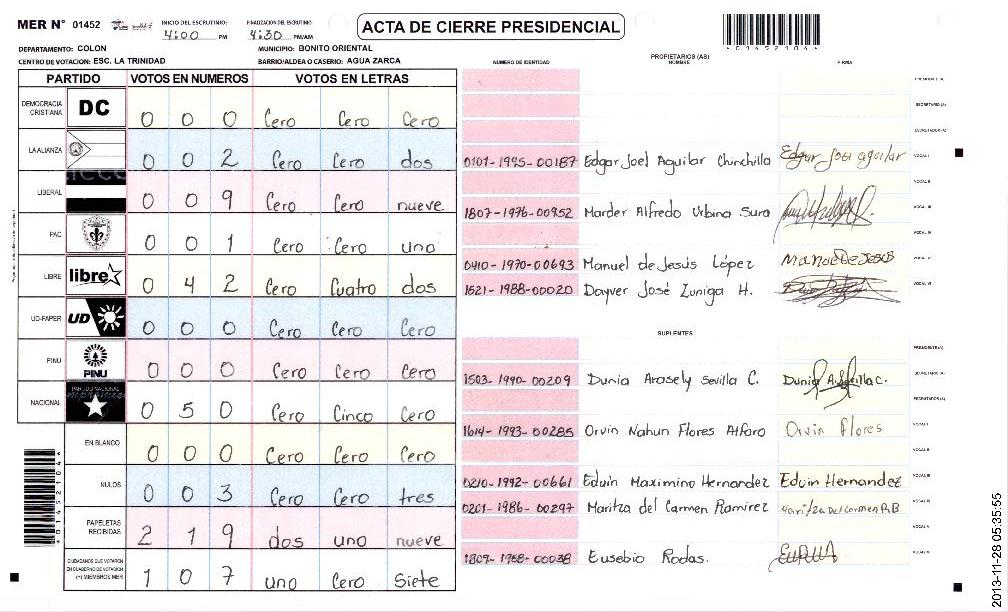 MER N° 01452
INICIO DEL ESCRUTINIO: 4:00 PM
FINALIZACIÓN DEL ESCRUTINIO: 4:30 PM/AM
ACTA DE CIERRE PRESIDENCIAL
*01452104*
DEPARTAMENTO: COLON
MUNICIPIO: BONITO ORIENTAL
CENTRO DE VOTACION: ESC. LA TRINIDAD
BARRIO/ALDEA O CASERIO: AGUA ZARCA
PARTIDO VOTOS EN NUMEROS VOTOS EN LETRAS
DEMOCRACIA CRISTIANA DC 0 0 0 Cero Cero Cero
LA ALIANZA 0 0 2 Cero Cero dos
LIBERAL 0 0 9 Cero Cero nueve
PAC 0 0 1 Cero Cero uno
LIBRE libre 0 4 2 Cero Cuatro dos
UD-FAPER UD 0 0 0 Cero Cero Cero
PINU PINU 0 0 0 Cero Cero Cero
NACIONAL PARTIDO NACIONAL 0 5 0 Cero Cinco Cero
EN BLANCO 0 0 0 Cero Cero Cero
NULOS 0 0 3 Cero Cero tres
PAPELETAS RECIBIDAS 2 1 9 dos uno nueve
CIUDADANOS QUE VOTARON EN CUADERNO DE VOTACION (+) MIEMBROS MER 1 0 7 uno Cero Siete
*01452104*
PROPIETARIOS (AS)
NUMERO DE IDENTIDAD NOMBRE FIRMA
PRESIDENTE (A)
SECRETARIO (A)
ESCRUTADOR (A)
0101-1995-00187 Edgar Joel Aguilar Chinchilla Edgar Joel aguilar VOCAL I
VOCAL II
1807-1976-00952 Marder Alfredo Urbina Sura VOCAL III
VOCAL IV
0410-1970-00693 Manuel de Jesús López Manuel De Jesus VOCAL V
1621-1988-00020 Dayver José Zuniga H. VOCAL VI
SUPLENTES
PRESIDENTE (A)
1503-1990-00209 Dunia Arasely Sevilla C. Dunia A. Sevilla C. SECRETARIO (A)
ESCRUTADOR (A)
1614-1993-00285 Orvin Nahun Flores Alfaro Orvin flores VOCAL I
VOCAL II
0210-1992-00661 Edwin Maximino Hernandez Edwin Hernandez VOCAL III
0201-1986-00297 Maritza del Carmen Ramirez Maritza Del Carmen R,B VOCAL IV
VOCAL V
1809-1968-00038 Eusebio Rodas. VOCAL VI
2013-11-28 05:35:55